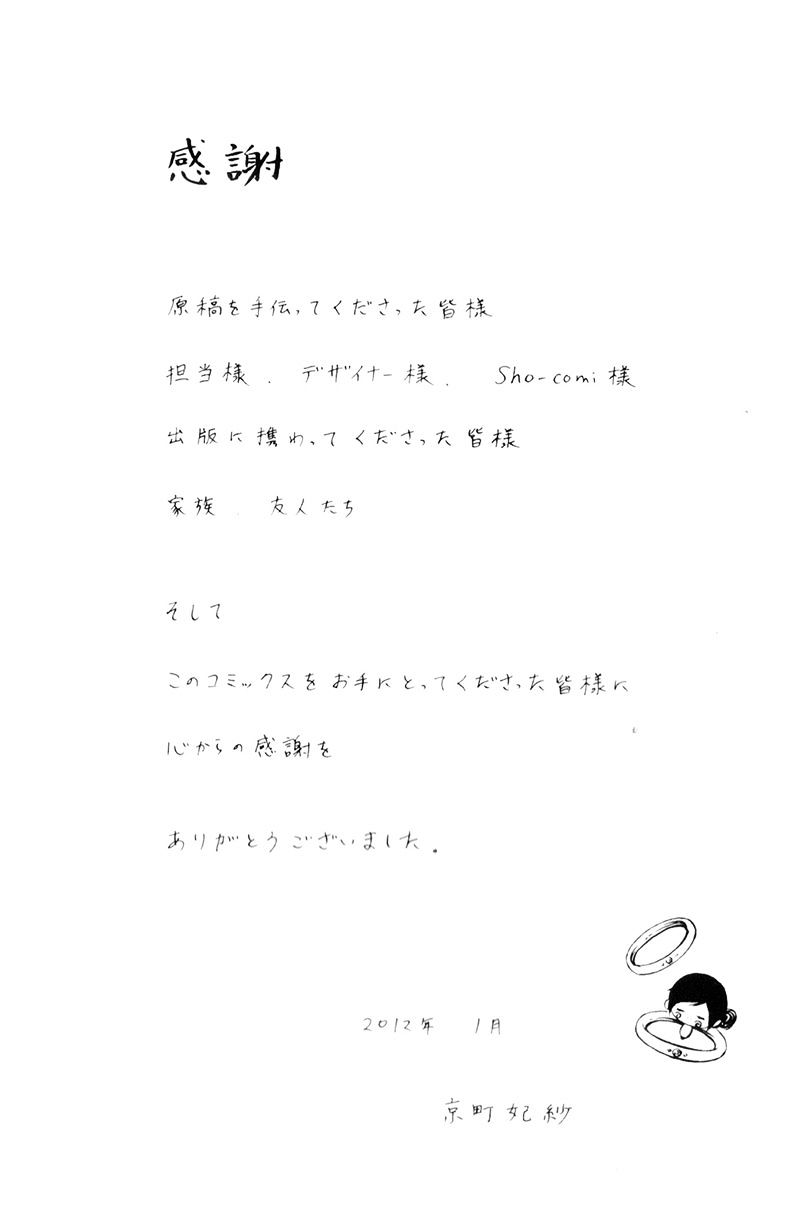 感謝
原稿を手伝ってくださった皆様
担当様、デザイナー様、Sho-comi様
出版に携わってくださった皆様
家族、友人たち
そして
このコミックスをお手にとってくださった皆様に
心からの感謝を
ありがとうございました。
2012年 1月
京町妃紗